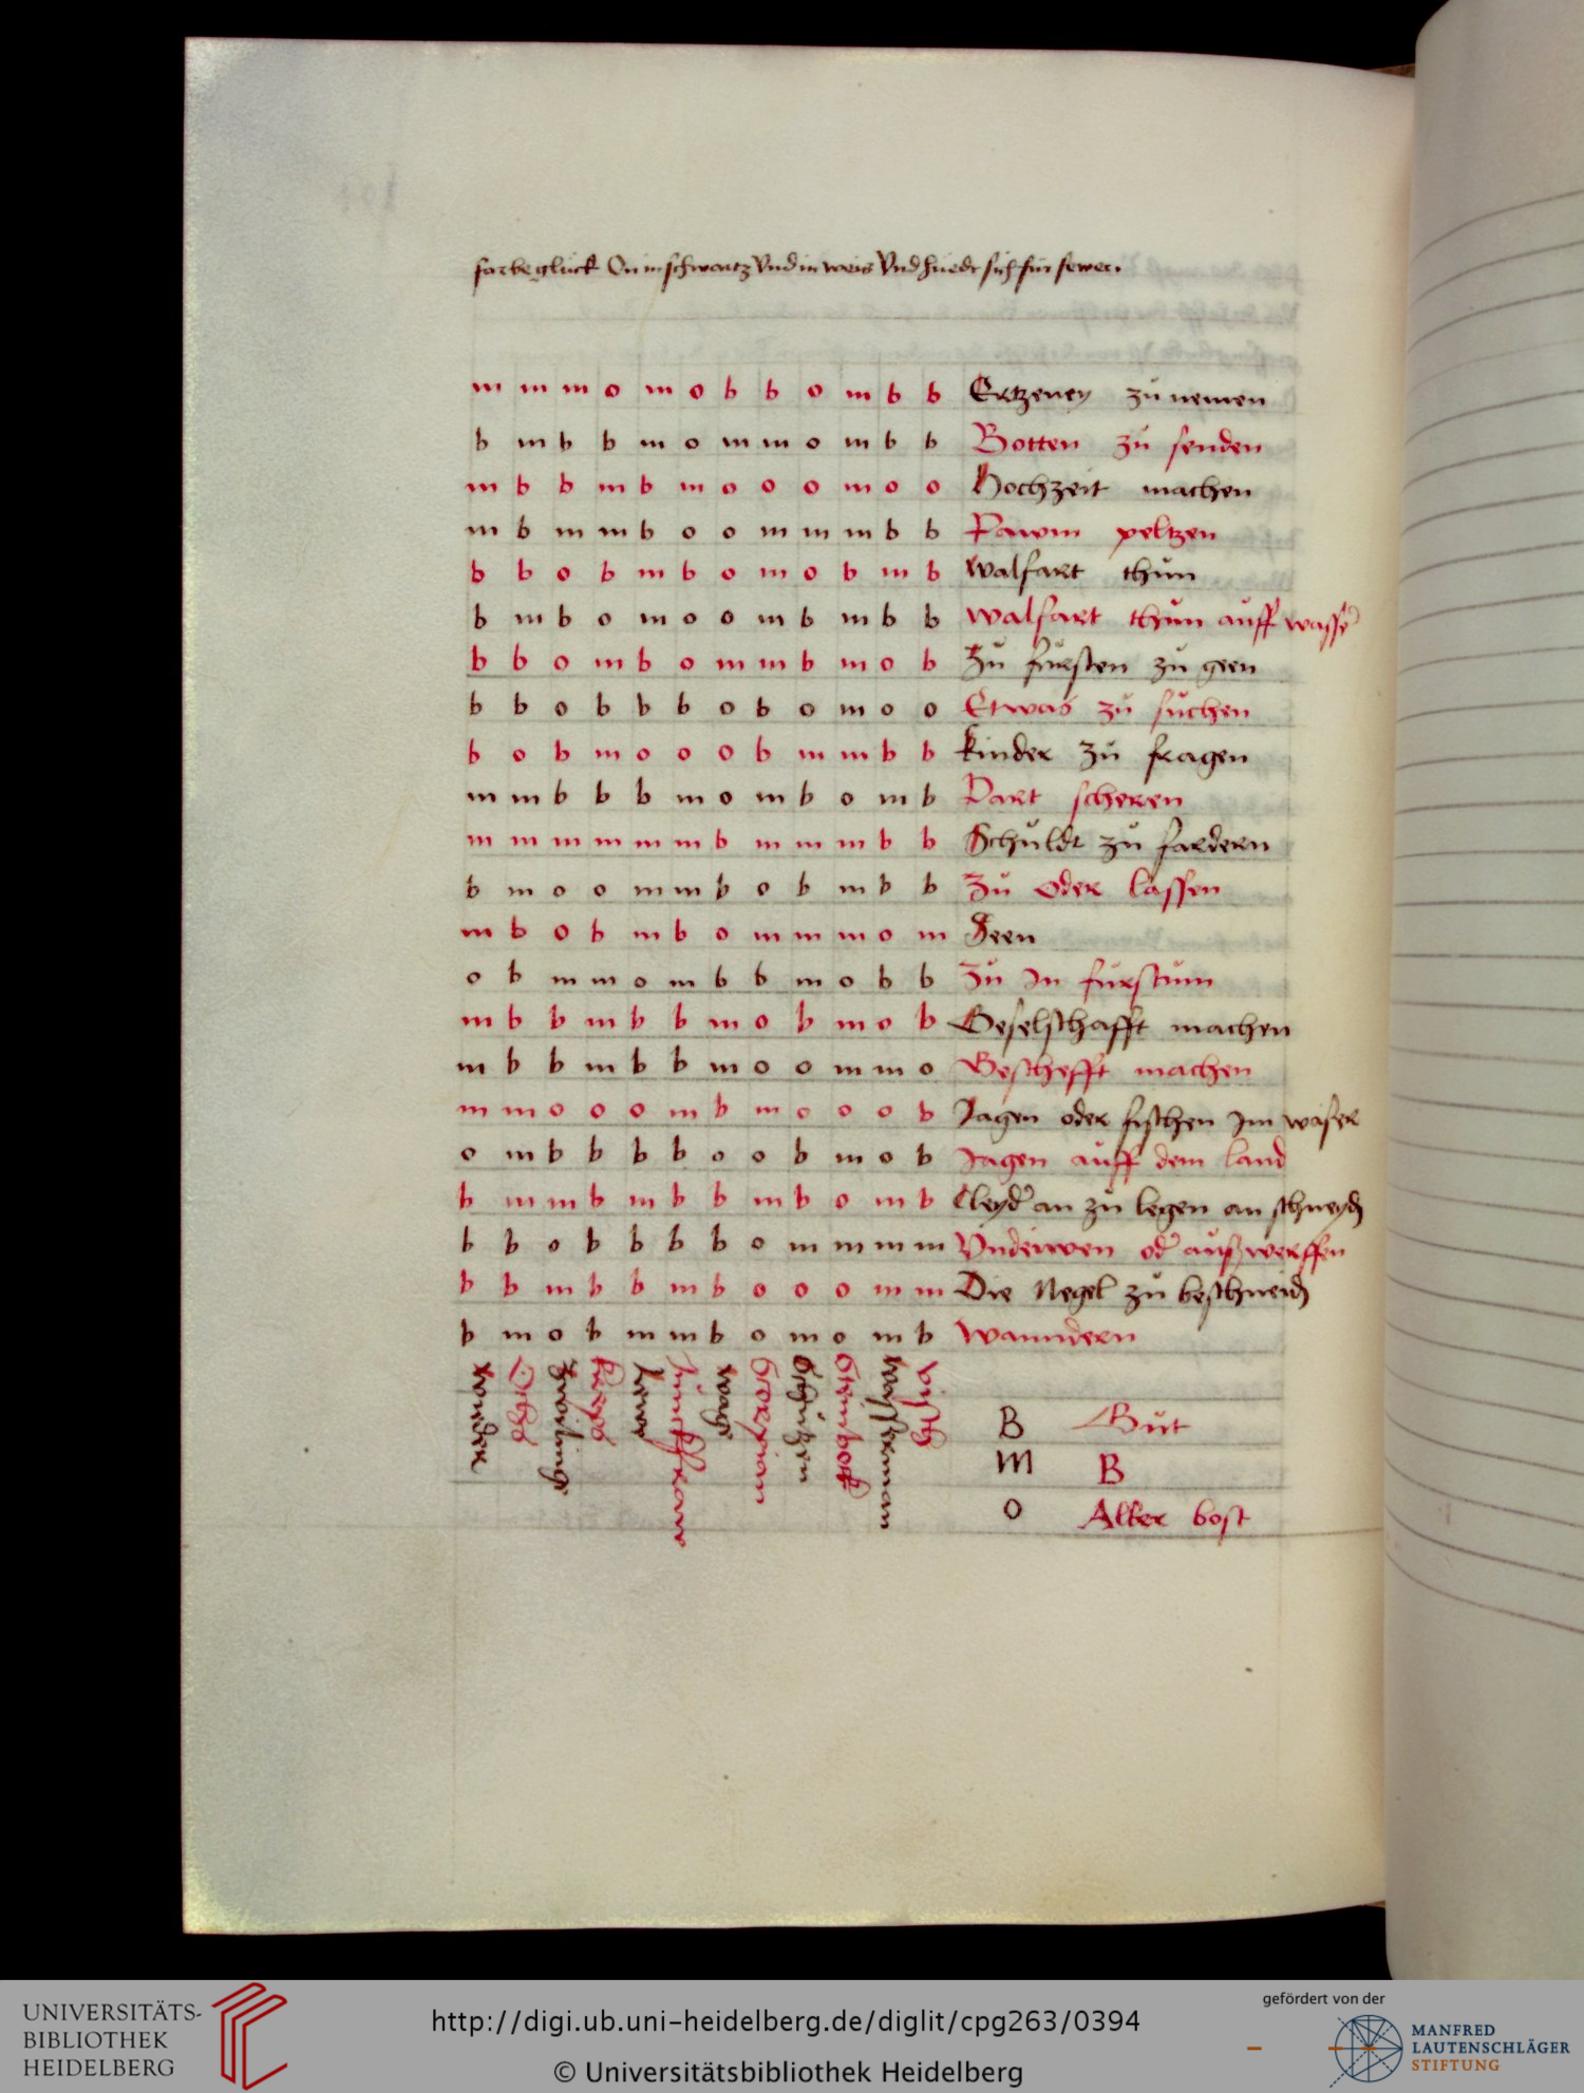 farbe glück On in schwartz Vnd in weis Vnd hüedt sich für fewer.
m m m o m o b b o m b b Ertzeney zů nemen
b m b b m o m m o m b b Botten zů senden
m b b m b m o o o m o o Hochzeit machen
m b m m b o o m m m b b Pawm peltzen
b b o b m b o m o b m b walfart thun
b m b o m o o m b m b b walfart thun auff wasser
b b o m b o m m b m o b Zů fursten zů geen
b b o b b b o b o m o o Etwas zů suchen
b o b m o o o b m m b b kinder zů fragen
m m b b b m o m b o m b Part scheren
m m m m m m b m m m b b Schuldt zů fardern
b m o o m m b o b m b b Zů oder lassen
m b o b m b o m m m o m Seen
o b m m o m b b m o b b Zů In furstum
m b b m b b m o b m o b Geselschafft machen
m b b m b b m o o m m o Geschefft machen
m m o o o m b m o o o b Jagen oder fischen Im waser
o m b b b b o o b m o b Jagen auff dem land
b m m b m b b m b o m b Cleyd an zů legen an schneyd
b b o b b b b o m m m m Vndewen od auß werffen
b b m b b m b o o o m m Die Negel zů beschneid
b m o b m m b o m o m b wanndern
wyder
Ochs
zwiling
krebs
Lew
Junckfraw
wage
Scorpian
Schützen
Steinbock
wasserman
visch
B Gut
m B
O Aller bost
UNIVERSITÄTS-
BIBLIOTHEK
HEIDELBERG
http://digi.ub.uni-heidelberg.de/diglit/cpg263/0394
© Universitätsbibliothek Heidelberg
gefördert von der
MANFRED
LAUTENSCHLÄGER
STIFTUNG